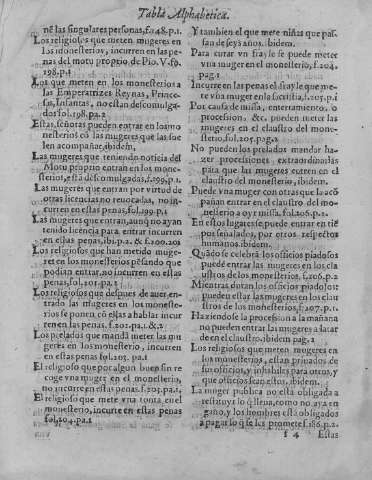 Tabla Alphabetica.
ne las singulares personas, fo.148.p.1.
Los religiosos que meten mugeres en
los monesterios, incurren en las pe
nas del motu proprio de Pio. V. fo.
198.p.1
Los que meten en los monesterios a
las Emperatrizes Reynas, Princesas,
Infantas, no estan descomulga
dos fol.198.pa.2
Estas, señoras pueden entrar en los mo
nesterios cõ las mugeres que las sue
len acompañar, ibidem,
Las mugeres que teniendo noticia del
Motu proprio entran en los mones
terios, està descomulgadas, f.199.p.1.
Las mugeres que entran por virtud de
otras licencias no reuocadas, no in
curren en estas penas, fol.199.p.1
Las mugeres que entran, aunq̃ no ayan
tenido licencia para entrar incurren
en estas penas, ibi.p.2. & f.200.201
Los religiosos que han metido muge
res en los monesterios pẽsando que
podian entrar, no incurren en estas
penas, fol.201.pa.1
Los religiosos que despues de auer en
trado las mugeres en los moneste
rio se ponen cõ ellas a hablar incur
ren en las penas, f.202.pa.1.&.2
Los prelados que mandã meter las mu
geres en los monesterio, incurren
en estas penas fol.203. pa.1
El religioso que por algun buen fin re
coge vna muger en el monesterio,
no incurre en estas penas. f.203.pa.1,
El religioso que mete vna tonta en el
monesterio, incurre en estas penas
fol.204.pa.1
Y tambien el que mete niñas que pas
san de seys años. ibidem.
Para curar vn frayle se puede meter
vna muger en el monesterio, f.204.
pag.1
Incurre en las penas el frayle que me
te vna muger en la sacristia, f.205.p.1
Por causa de missa, enterramiento, o
procession, &c. pueden meter las
mugeres en el claustro del mones
terio, fol.205.pag.2
No pueden los prelados mandar ha
zer processiones, extraordinarias
para que las mugeres entren en el
claustro del monesterio, ibidem.
Puede vna muger con otras que la acõ
pañan entrar en el claustro del mo
nesterio a oyr missa, fol.205.p.2.
En estos lugares se puede entrar en tiẽ
pos señalados, por otros respectos
humanos. ibidem.
Quãdo se celebrã los officios piadosos
puede entrar las mugeres en los cla
ustros de los monesterios, f.206.p.2
Mientras duran los officios piadosos
pueden estar las mugeres en los clau
stros de los monesterios, f.207.p.1.
Haziendose la procession a la mañana
no pueden entrar las mugeres a la tar
de en el claustro. ibidem pag.2
Los religiosos que meten mugeres en
los monesterios, estan priuados de
sus officios, y inhabiles para otros, y
que officios sean estos, ibidem.
La muger publica no està obligada a
restituyr lo q̃ lleua, como no aya en
gano, y los hombres està obligados
a pagar lo q̃ les prometẽ f.186.p.2.
f 4 Estas